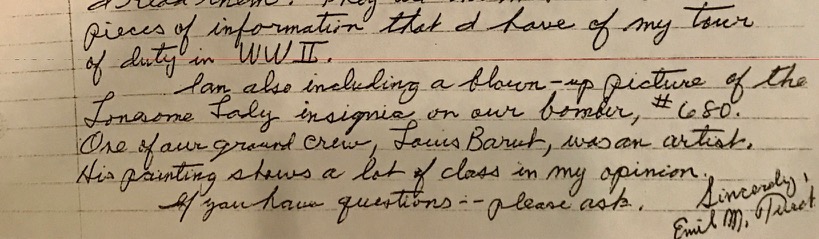 pieces of information that I have of my tour
of duty in WW II.
I am also including a blown-up picture of the
Lonesome Lady insignia on our bomber, #680.
One of our ground crew, Louis Barut, was an artist.
His painting shows a lot of class in my opinion.
If you have questions -- please ask.
Sincerely,
Emil M. Turek